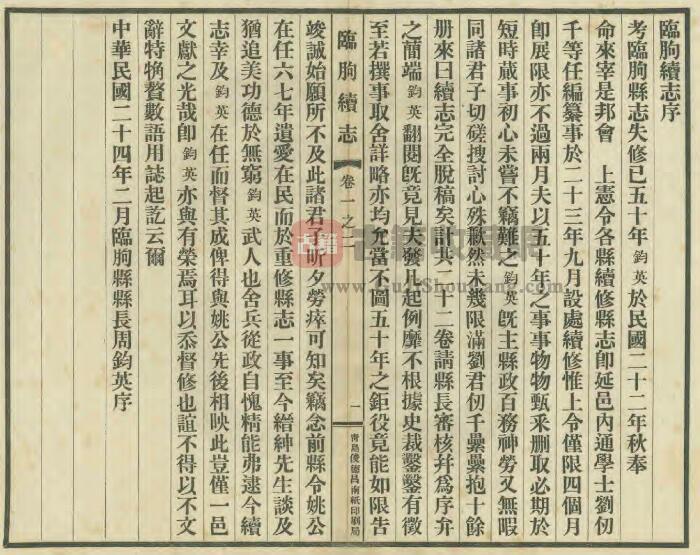 臨朐續志序
考臨朐縣志失修已五十年鈞英於民國二十二年秋奉
命來宰是邦會　上憲令各縣續修縣志卽延邑內通學士劉仞
千等任編纂事於二十三年九月設處續修惟上令僅限四個月
卽展限亦不過兩月夫以五十年之事事物物甄采刪取必期於
短時蕆事初心未嘗不竊難之鈞英旣主縣政百務神勞又無暇
同諸君子切磋搜討心殊歉然未幾限滿劉君仞千纍纍抱十餘
册來曰續志完全脫稿矣計共二十二卷請縣長審核幷爲序弁
之簡端鈞英翻閱旣竟見夫發凡起例靡不根據史裁鑿鑿有徵
至若撰事取舍詳略亦均允當不圖五十年之鉅役竟能如限告
臨朐續志
卷一之一
一
青島俊德昌南紙印刷局
竣誠始願所不及此諸君子昕夕勞瘁可知矣竊念前縣令姚公
在任六七年遺愛在民而於重修縣志一事至今縉紳先生談及
猶追美功德於無窮鈞英武人也舍兵從政自愧精能弗逮今續
志幸及鈞英在任而督其成俾得與姚公先後相映此豈僅一邑
文獻之光哉卽鈞英亦與有榮焉耳以忝督修也誼不得以不文
辭特觕贅數語用誌起訖云爾
中華民國二十四年二月臨朐縣縣長周鈞英序
古籍
古籍收藏网
www.GujiShouCang.com